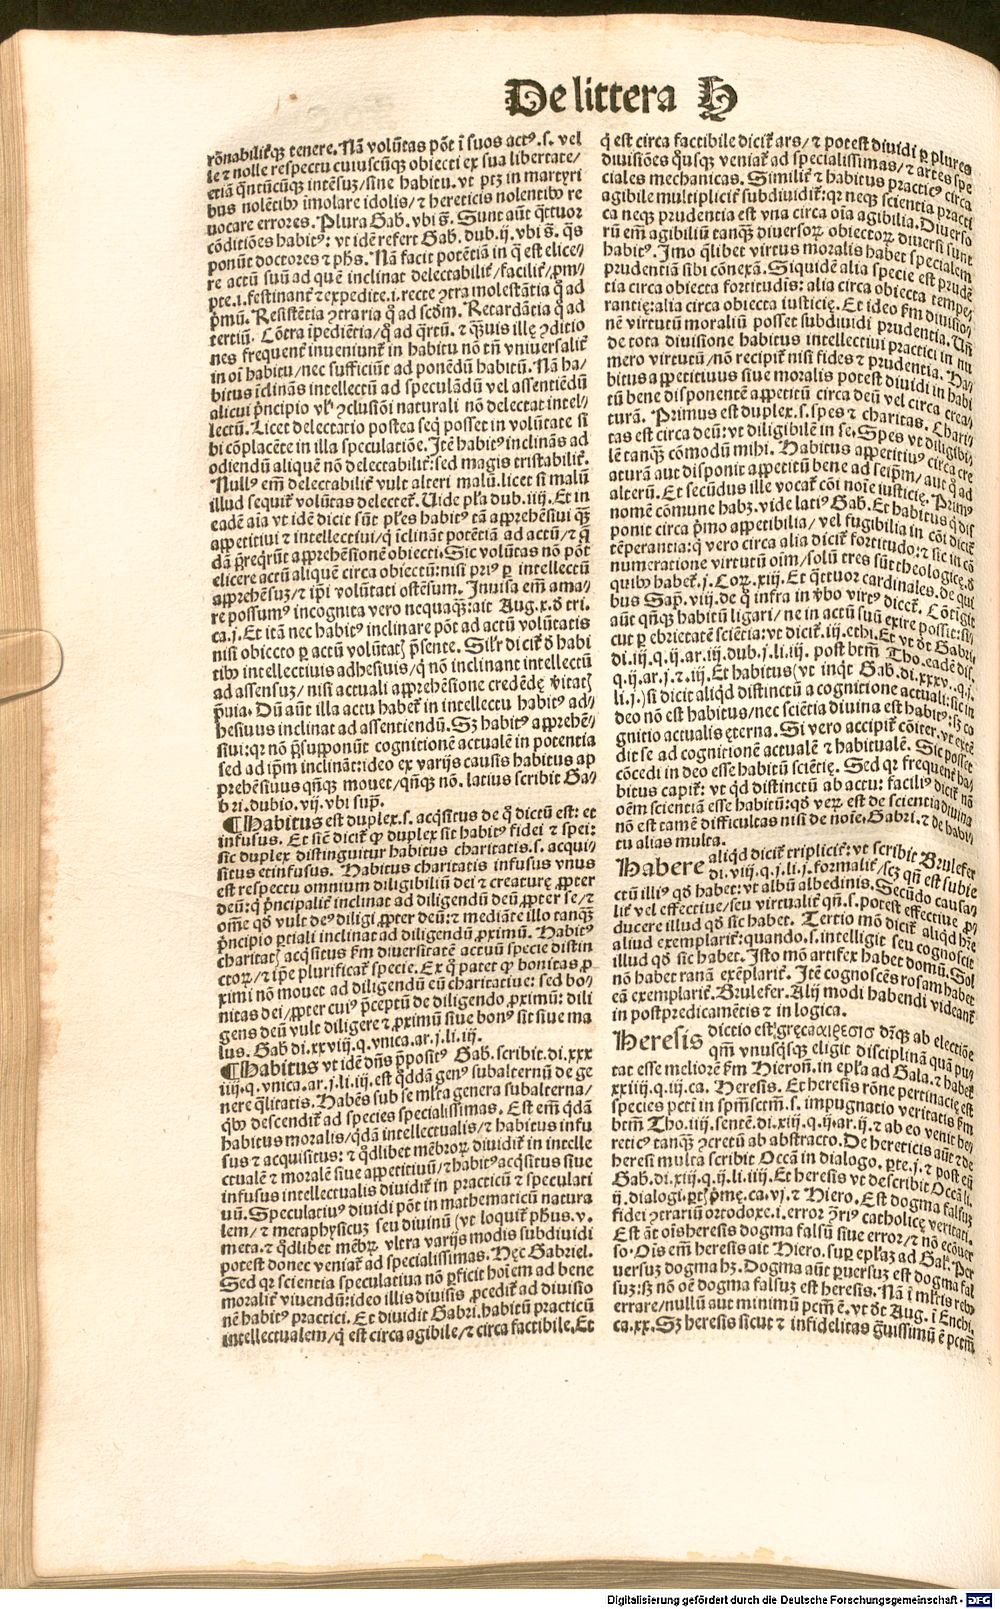 De littera H
rõnabilit᷑qꝫ tenere. Nã volũtas põt ĩ suos act⁹ .s. vel
le ⁊ nolle respectu cuiuscũqꝫ obiecti ex sua libertate/
etiã q̃ntũcũqꝫ intẽsuꝫ/sine habitu. vt ptꝫ in martyri
bus nolẽtibꝰ imolare idolis/⁊ hereticis nolentibꝰ re
uocare errores. Plura Gab. vbi s̃. Sunt aũt q̃ttuor
cõditiões habit⁹: vt idẽ refert Gab. dub .ij. vbi s̃. q̃s
ponũt doctores ⁊ phs̃. Nã facit potẽtiã in q̃ est elice-
re actũ suũ ad quẽ inclinat delectabilit᷑/facilit᷑/ꝓm/
pte .i. festinant᷑ ⁊ expedite .i. recte ꝯtra molestãtia q̃ ad
p̃mũ. Resistẽtia ꝯtraria q̃ ad scd̃m. Retardãtia q̃ ad
tertiũ. Cõtra ipediẽtia/q̃ ad q̃rtũ. ⁊ q̃uis illę ꝯditio
nes frequent᷑ inueniunt᷑ in habitu nõ tñ vniuersalit᷑
in oĩ habitu/nec sufficiũt ad ponẽdũ habitũ. Nã ha/
bitus ĩclinãs intellectũ ad speculãdũ vel assentiẽdũ
alicui p̃ncipio vl᷑ ꝯclusiõi naturali nõ delectat intel/
lectũ. Licet delectatio postea seq̃ posset in volũtate si
bi cõplacẽte in illa speculatiõe. Itẽ habit⁹ inclinãs ad
odiendũ aliquẽ nõ delectabilit᷑: sed magis tristabilit᷑.
Null⁹ em̃ delectabilit᷑ vult alteri malũ. licet si malũ
illud sequit᷑ volũtas delectet᷑. Uide pl᷑a dub .iiij. Et in
eadẽ aĩa vt idẽ dicit sũt pl᷑es habit⁹ tã apprehẽsiui q̃ꝫ
appetitiui ⁊ intellectiui/q̃ iclinãt potẽtiã ad actũ/⁊ q̃
dã p̃reqr̃ũt apprehẽsionẽ obiecti. Sic volũtas nõ põt
elicere actũ aliquẽ circa obiectũ: nisi pri⁹ ꝑ intellectũ
apprehẽsuꝫ/⁊ ip̃i volũtati ostẽsum. Inuisa em̃ ama/
re possum⁹ incognita vero nequaqꝫ: ait Aug. x. d̃ tri.
ca .j. Et itã nec habit⁹ inclinare põt ad actũ volũtatis
nisi obiecto ꝑ actũ volũtatꝭ p̃sente. Sil᷑r dicit᷑ d̃ habi
tibꝰ intellectiuis adhesiuis/q̃ nõ inclinant intellectũ
ad assensuꝫ/nisi actuali apprehẽsione credẽdę v̾itatꝭ
p̃uia. Dũ aũt illa actu habet᷑ in intellectu habit⁹ ad/
hesiuus inclinat ad assentiendũ. Sꝫ habit⁹ apprehẽ/
siui: qr nõ p̃supponũt cognitionẽ actualẽ in potentia
sed ad ip̃m inclinãt: ideo ex varijs causis habitus ap
prehẽsiuus qñqꝫ mouet/qñqꝫ nõ. latius scribit Ga/
bri. dubio .vij. vbi sup̃.
¶ Habitus est duplex .s. acq̃situs de q̃ dictũ est: et
infusus. Et siẽ dicit᷑ ꝙ duplex sit habit⁹ fidei ⁊ spei:
sic duplex distinguitur habitus charitatis .s. acqui/
situs et infusus. Habitus charitatis infusus vnus
est respectu omnium diligibiliũ dei ⁊ creaturę ꝓpter
deũ: q̃ p̃ncipalit᷑ inclinat ad diligendũ deũ ꝓpter se/⁊
om̃e qd̃ vult de⁹ diligi ꝓpter deũ: ⁊ mediãte illo tanqꝫ
p̃ncipio ꝑtiali inclinat ad diligendũ ꝓximũ. Habit⁹
charitatꝭ acq̃situs ẜm diuersitatẽ actuũ specie distin
ctoꝝ/⁊ ip̃e plurificat᷑ specie. Ex q̃ patet ꝙ bonitas ꝓ
ximi nõ mouet ad diligendũ eũ charitatiue: sed bo/
nitas dei/ꝓpter cui⁹ p̃ceptũ de diligendo ꝓximũ: dili
gens deũ vult diligere ⁊ ꝓximũ siue bon⁹ sit siue ma
lus. Gab. di .xxviij. q. vnica. ar .j. li .iij.
¶ Habitus vt idẽ dñs p̃posit⁹ Gab. scribit .di .xxx
iiij. q. vnica. ar .j. li .iij. est q̃ddã gen⁹ subalternũ de ge
nere q̃litatis. Habẽs sub se ml᷑ta genera subalterna/
q̃bꝰ descendit᷑ ad species specialissimas. Est em̃ q̃dã
habitus moralis/q̃dã intellectualis/⁊ habitus infu
sus ⁊ acquisitus: ⁊ q̃dlibet mẽbroꝝ diuidit᷑ in intelle
ctualẽ ⁊ moralẽ siue appetitiuũ/⁊ habit⁹ acq̃situs siue
infusus intellectualis diuidit᷑ in practicũ ⁊ speculati
uũ. Speculatiu⁹ diuidi põt in mathematicũ natura
lem/⁊ metaphysicuꝫ seu diuinũ (vt loquit᷑ phus .v.
meta. ⁊ q̃dlibet mẽbꝝ vltra varijs modis subdiuidi
potest donec veniat᷑ ad specialissimas. Hęc Gabriel.
Sed qr scientia speculatiua nõ ꝑficit hoĩem ad bene
moralit᷑ viuendũ: ideo illis diuisis ꝓcedit᷑ ad diuisio
nẽ habit⁹ practici. Et diuidit Gabri. habitũ practicũ
intellectualem/q̃ est circa agibile/⁊ circa factibile. Et
q̃ est circa factibile dicit᷑ ars/⁊ potest diuidi ꝑ plures
diuisiões q̃usqꝫ veniat᷑ ad specialissimas/⁊ artes spe
ciales mechanicas. Similit᷑ ⁊ habitus practic⁹ circa
agibile multiplicit᷑ subdiuidit᷑: qr neqꝫ scientia practi
ca neqꝫ prudentia est vna circa oĩa agibilia. Diuerso
rũ em̃ agibiliũ tanqꝫ diuersoꝝ obiectoꝝ diuersi sunt
habit⁹. Imo q̃libet virtus moralis habet specialem
prudentiã sibi cõnexã. Siquidẽ alia specie est prudẽ
tia circa obiecta fortitudis: alia circa obiecta tempe/
rantie: alia circa obiecta iusticię. Et ideo ẜm diuisio/
nẽ virtutũ moraliũ posset subdiuidi prudentia. Uñ
de tota diuisiõne habitus intellectiui practici in nu
mero virtutũ/nõ recipit᷑ nisi fides ⁊ prudentia. Ha/
bitus appetitiuus siue moralis potest diuidi in habi
tũ bene disponentẽ appetitũ circa deũ vel circa crea/
turã. Primus est duplex .s. spes ⁊ charitas. Chari/
tas est circa deũ: vt diligibilẽ in se. Spes vt diligibi/
lẽ tanqꝫ cõmodũ mihi. Habitus appetitiu⁹ circa cre
aturã aut disponit appetitũ bene ad seip̃m/aut q̃ ad
alterũ. Et secũdus ille vocat᷑ cõi noĩe iusticię. Prim⁹
nomẽ cõmune habꝫ. vide lati⁹ Gab. Et habitus q̃ dis
ponit circa p̃mo appetibilia/vel fugibilia in cõi dicit᷑
tẽperantia: q̃ vero circa alia dicit᷑ fortitudo: ⁊ sic in cõ
numeratione virtutũ oĩm/solũ tres sũt theologicę. d̃
quibꝰ habet᷑ .j. Coꝝ. xiij. Et q̃ttuor cardinales. de qui
bus Sap̃. viij. de q̃ infra in v̾bo virt⁹ dicet᷑. Cõtigit
aũt qñqꝫ habitũ ligari/ne in actũ suũ exire possit: si/
cut ꝑ ebrietatẽ sciẽtia: vt dicit᷑ .iij. ethi. Et vt d̃t Gabri.
di .iij. q .ij. ar .iij. dub .j. li .iij. post btm̃ Tho. eadẽ dis.
q .ij. ar .j. ⁊ .iij. Et habitus (vt inq̃t Gab. di .xxxv. q .j.
li .j.) si dicit aliq̃d distinctũ a cognitione actuali: sic in
deo nõ est habitus/nec sciẽtia diuina est habit⁹: sꝫ co
gnitio actualis ęterna. Si vero accipit᷑ cõiter. vt extẽ
dit se ad cognitionẽ actualẽ ⁊ habitualẽ. Sic posset
cõcedi in deo esse habitũ sciẽtię. Sed qr frequent᷑ ha/
bitus capit᷑: vt q̃d distinctũ ab actu: facili⁹ dicit᷑ nõ
oẽm scientiã esse habitũ: qd̃ veꝝ est de scientia diuina
nõ est tamẽ difficultas nisi de noĩe. Gabri. ⁊ de habi/
tu alias multa.
Habere aliq̃d dicit᷑ tripliciť: vt scribit Brulefer
di .viij. q .j. li .j. formalit᷑/scꝫ qñ est subie
ctũ illi⁹ qd̃ habet: vt albũ albedinis. Secũdo causa/
lit᷑ vel effectiue/seu virtualit᷑ qñ .s. potest effectiue ꝓ/
ducere illud qd̃ sic habet. Tertio mõ dicit᷑ aliq̃d hr̃e
aliud exemplarit᷑: quando .s. intelligit seu cognoscit
illud qd̃ sic habet. Isto mõ artifex habet domũ. Sol
nõ habet ranã exẽplarit᷑. Itẽ cognoscẽs rosam habet
eã exemplarit᷑. Brulefer. Alij modi habendi videant᷑
in postpredicamẽtis ⁊ in logica.
Heresis dictio est gręca αιρεσισ dr̃qꝫ ab electiõe
qm̃ vnusq̃sqꝫ eligit disciplinã quã pu/
tat esse meliorẽ ẜm Hieroñ. in ep̃la ad Gala. ⁊ habet᷑
xxiiij. q .iij. ca. Heresis. Et heresis rõne pertinacię est
species pcti in spm̃sctm̃ .s. impugnatio veritatis ẜm
btm̃ Tho. iij. sentẽ. di .xiij. q .ij. ar .ij. ⁊ ab eo venit he/
retic⁹ tanqꝫ ꝯcretũ ab abstracto. De hereticis aũt ⁊ de
heresi multa scribit Occã in dialogo. ꝑte .j. ⁊ post eũ
Gab. di .xiij. q .ij. li .iiij. Et heresis vt describit Occã li.
ij. dialogi. ꝑtꝭ p̃mę. ca. vj. ⁊ Hiero. Est dogma falsuꝫ
fidei ꝯtrariũ ortodoxe .i. error ꝯ̃ri⁹ catholicę veritati.
Est ãt oĩs heresis dogma falsũ siue error/⁊ nõ ecõuer
so. Oĩs em̃ heresis ait Hiero. suꝑ ep̃laꝫ ad Gal. Per
uersuꝫ dogma hꝫ. Dogma aũt ꝑuersuꝫ est dogma fal
suꝫ: sꝫ nõ oẽ dogma falsuꝫ est heresis. Nã ĩ ml᷑tis rebꝰ
errare/nullũ aut minimũ pctm̃ ẽ. vt d̃t Aug. ĩ Enchi.
ca. xx. Sꝫ heresis sicut ⁊ infidelitas g̃uissimũ ẽ pctm̃
Digitalisierung gefördert durch die Deutsche Forschungsgemeinschaft - DFG